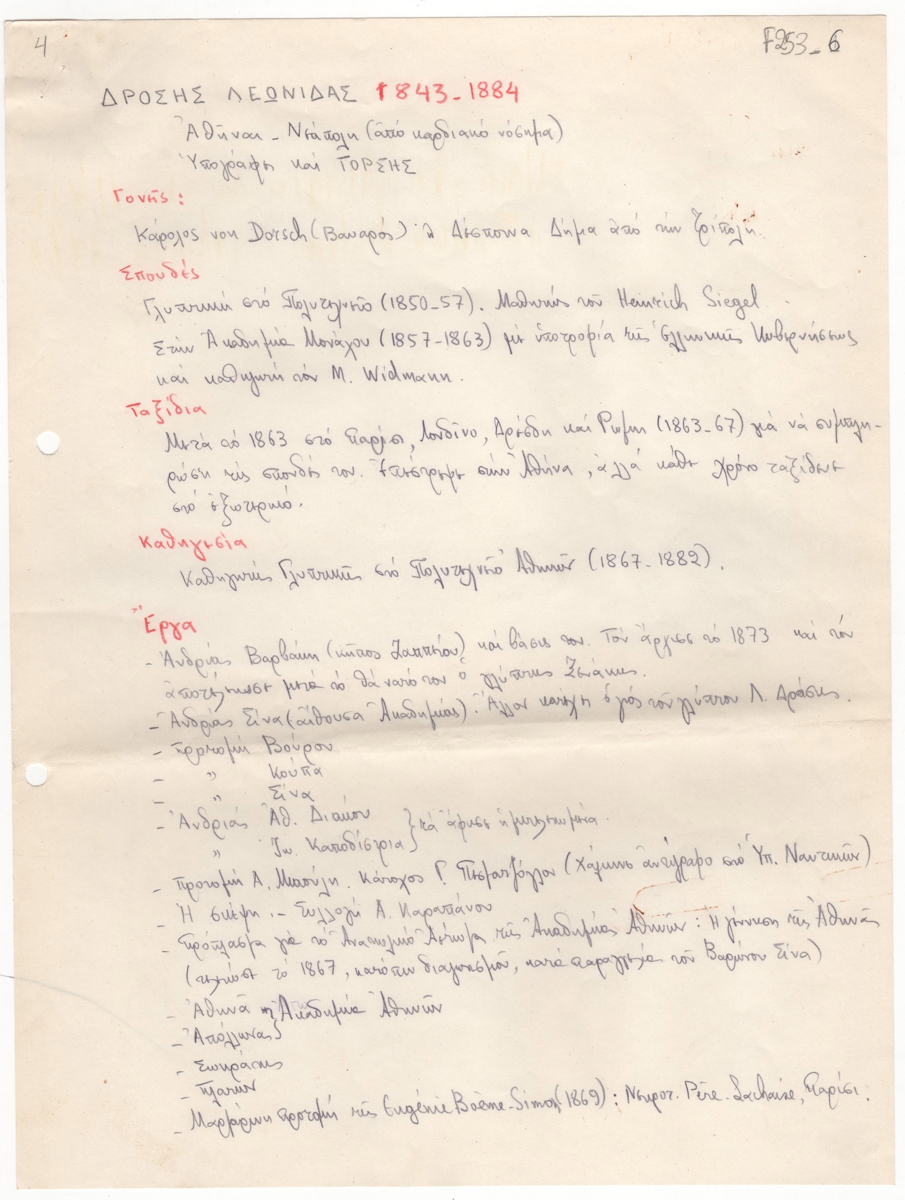 4
F253-6
ΔΡΟΣΗΣ ΛΕΩΝΙΔΑΣ 1843-1884
Ἀθῆναι - Νεάπολη (ἀπό καρδιακό νόσημα)
Ὑπογράφη καί ΤΟΡΣΗΣ
Γονῆς:
Κάρολος νον Dorsch (Βαυαρός) & Δέσποινα Δήμα ἀπό τήν Τρίπολη.
Σπουδές
Γλυπτική στό Πολυτεχνεῖο (1850-57). Μαθητής τοῦ Heinrich Siegel.
Στήν Ἀκαδημία Μονάχου (1857-1863) μέ ὑποτροφία τῆς ἑλληνικῆς Κυβερνήσεως
καί καθηγητή τόν Μ. Widmann.
Ταξίδια
Μετά τό 1863 στό Παρίσι, Λονδίνο, Δρέσδη καί Ρώμη (1863-67) γιά νά συμπλη-
ρώση τίς σπουδές του. Ἐπέστρεψε στήν Ἀθήνα, ἀλλά κάθε χρόνο ταξίδευε
στό ἐξωτερικό.
Καθηγεσία
Καθηγητής Γλυπτικῆς στό Πολυτεχνεῖο Ἀθηνῶν (1867-1882).
Ἔργα
- Ἀνδριάς Βαρβάκη (κῆπος Ζαππείου) καί βάσις του. Τόν ἄρχισε τό 1873 καί τόν
ἀποτελείωσε μετά τό θάνατό του ὁ γλύπτης
- Ἀνδριάς Σίνα (αἴθουσα Ἀκαδημίας). Ἄλλον κατέχη ὁ γιός τοῦ γλύπτου Λ. Δρόσης.
- Προτομή Βούρου
- " Κούπα
- " Σίνα
- Ἀνδριάς Ἀθ. Διάκου } τά ἄφησε ἡμιτελειωμένα.
" Ἰω. Καποδίστρια
- Προτομή Α. Μιαούλη. Κάτοχος Γ. Πεσματζόγλου (Χάλκινο ἀντίγραφο στό Ὑπ. Ναυτικῶν)
- Ἡ σκέψη. - Συλλογή Α. Καραπάνου
- Πρόπλασμα γιά τό Ἀνατολικό Ἀέτωμα τῆς Ἀκαδημίας Ἀθηνῶν: Ἡ γέννηση τῆς Ἀθηνᾶς
(τελείωσε τό 1867, κατόπιν διαγωνισμοῦ, κατά παραγγελία τοῦ Βαρώνου Σίνα)
- Ἀθηνᾶ Ἀκαδημία Ἀθηνῶν
- Ἀπόλλωνας }
- Σωκράτης
- Πλάτων
- Μαρμάρινη προτομή τῆς Eugénie Boëne-Simon (1869): Νεκροτ. Père-Lachaise, Παρίσι.